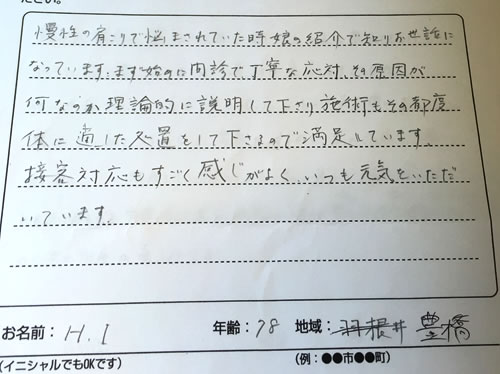 ださい。
慢性の肩こりで悩まされていた時娘の紹介で知りお世話に
なっています。まず始めに問診で丁寧な応対、その原因が
何なのか理論的に説明して下さり施術もその都度
体に適した処置をして下さるので満足しています。
接客対応もすごく感じがよく、いつも元気をいただ
いています。
お名前：H.I 年齢：78 地域：羽根井 豊橋
(イニシャルでもOKです) (例：●●市●●町)